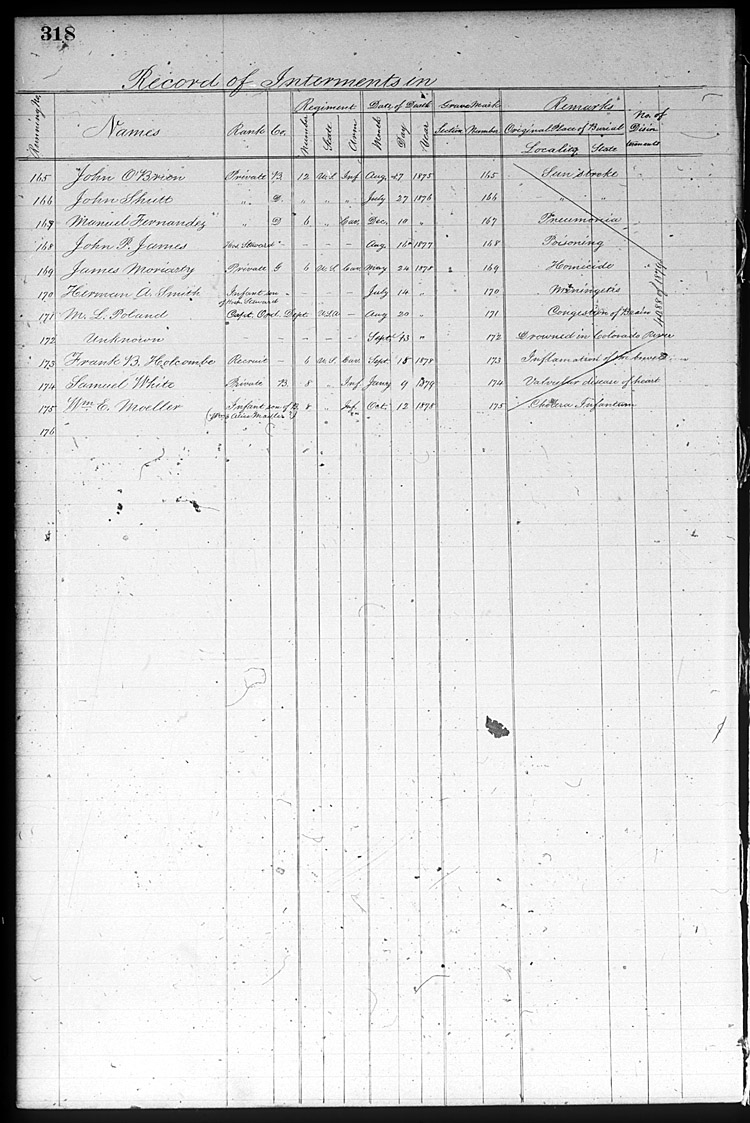 318
Record of Interments in
Running No. Names Rank Co. Regiment Number State Arm Date of Death Month Day Year Grave Mark Section Number Remarks Original Place of Burial Locality State No. of Disinterments
165 John O'Brien Private B 12 U.S. Inf Aug. 27 1875 165 Sunstroke
166 John Shutt " D. " " " July 27 1876 166 " "
167 Manuel Fernandez " D 6 " Cav. Dec. 10 " 167 Pneumonia
168 John P. James Hos. Steward - - - - Aug. 16 1877 168 Poisoning
169 James Moriarty Private G 6 U.S. Cav. May 24 1878 169 Homicide
170 Herman A. Smith Infant son of Hosp. Steward - - - July 14 " 170 Meningetis
171 M. L. Poland Capt. Ord. Dept. U.S.A. Aug 20 " 171 Congestion of Brain
172 Unknown - - - Sept. 13 " 172 Drowned in Colorado River
173 Frank B. Holcombe Recruit - 6 U.S. Cav. Sept. 15 1878 173 Inflamation of the bowels
174 Samuel White Private B. 8 " Inf Jany 9 1879 174 Valvular disease of heart
175 Wm. E. Moeller Infant son of B. 8 " Inf. Oct. 12 1878 175 Cholera Infantum
176